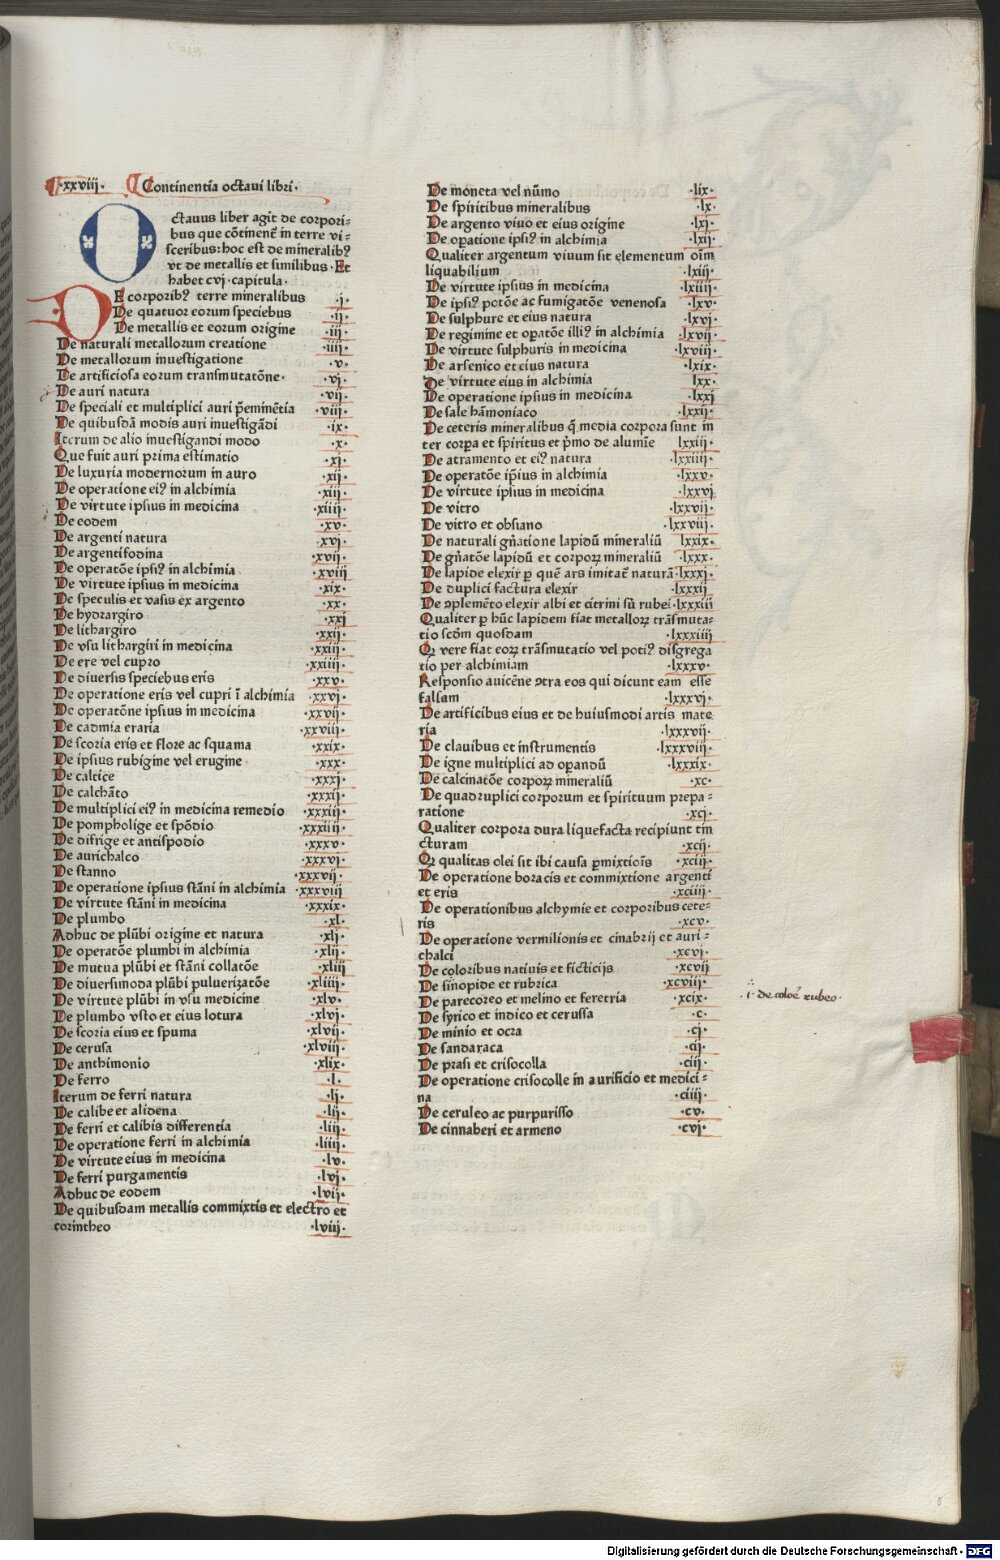 ·xxviij· Continentia octaui libri·
Octauus liber agit de corpori⸗
bus que cōtinent᷑ in terre vi⸗
sceribus: hoc est de mineralibꝰ
vt de metallis et similibus· Et
habet cvj·capitula·
DE corporibꝰ terre mineralibus ·j·
De quatuor eorum speciebus ·ij·
De metallis et eorum origine ·iij·
De naturali metallorum creatione ·iiij·
De metallorum inuestigatione ·v·
De artificiosa eorum transmutatōne· ·vj·
De auri natura ·vij·
De speciali et multiplici auri p̄eminētia ·viij·
De quibusdā modis auri inuestigādi ·ix·
Iterum de alio inuestigandi modo ·x·
Que fuit auri prima estimatio ·xj·
De luxuria modernorum in auro ·xij·
De operatione eiꝰ in alchimia ·xiij·
De virtute ipsius in medicina ·xiiij·
De eodem ·xv·
De argenti natura ·xvj·
De argentifodina ·xvij·
De operatōe ipsiꝰ in alchimia ·xviij
De virtute ipsius in medicina ·xix·
De speculis et vasis ex argento ·xx·
De hydrargiro ·xxj
De lithargiro ·xxij·
De vsu lithargiri in medicina ·xxiij·
De ere vel cupro ·xxiiij·
De diuersis speciebus eris ·xxv·
De operatione eris vel cupri ī alchimia ·xxvj·
De operatōne ipsius in medicina ·xxvij·
De cadmia eraria ·xxviij·
De scoria eris et flore ac squama ·xxix·
De ipsius rubigine vel erugine ·xxx·
De caltice ·xxxj·
De calchāto ·xxxij·
De multiplici eiꝰ in medicina remedio ·xxxiij·
De pompholige et spōdio ·xxxiiij·
De difrige et antispodio ·xxxv·
De aurichalco ·xxxvj·
De stanno ·xxxvij·
De operatione ipsius stāni in alchimia ·xxxviij
De virtute stāni in medicina ·xxxix·
De plumbo ·xl·
Adhuc de plūbi origine et natura ·xlj·
De operatōe plumbi in alchimia ·xlij·
De mutua plūbi et stāni collatōe ·xliij
De diuersimoda plūbi puluerizatōe ·xliiij·
De virtute plūbi in vsu medicine ·xlv·
De plumbo vsto et eius lotura ·xlvj·
De scoria eius et spuma ·xlvij·
De cerusa ·xlviij·
De anthimonio ·xlix·
De ferro ·l·
Iterum de ferri natura ·lj·
De calibe et alidena ·lij·
De ferri et calibis differentia ·liij·
De operatione ferri in alchimia ·liiij·
De virtute eius in medicina ·lv·
De ferri purgamentis ·lvj·
Adhuc de eodem ·lvij·
De quibusdam metallis commixtis et electro et
corintheo ·lviij·
De moneta vel nūmo ·lix·
De spiritibus mineralibus ·lx·
De argento viuo et eius origine ·lxj·
De oꝑatione ipsiꝰ in alchimia ·lxij·
Qualiter argentum viuum sit elementum oīm
liquabilium ·lxiij·
De virtute ipsius in medicina ·lxiiij·
De ipsiꝰ potōe ac fumigatōe venenosa ·lxv·
De sulphure et eius natura ·lxvj·
De regimine et opatōe illiꝰ in alchimia ·lxvij·
De virtute sulphuris in medicina ·lxviij·
De arsenico et eius natura ·lxix·
De virtute eius in alchimia lxx·
De operatione ipsius in medicina ·lxxj
De sale hāmoniaco ·lxxij·
De ceteris mineralibus q̄ media corpora sunt in
ter corꝑa et spiritus et p̄mo de alumīe lxxiij·
De atramento et eiꝰ natura ·lxxiiij·
De operatōe ip̄ius in alchimia ·lxxv·
De virtute ipsius in medicina ·lxxvj
De vitro ·lxxvij·
De vitro et obsiano ·lxxviij·
De naturali gn̄atione lapidū mineraliū lxxix·
De gn̄atōe lapidū et corpoꝝ mineraliū ·lxxx·
De lapide elexir ꝑ quē ars imitat᷑ naturā ·lxxxj·
De duplici factura elexir ·lxxxij
De ꝯplemēto elexir albi et citrini sū rubei·lxxxiij
Qualiter ꝑ hūc lapidem fiat metalloꝝ trāsmuta⸗
tio scd̄m quosdam ·lxxxiiij
Qꝛ vere fiat eoꝝ trāsmutatio vel potiꝰ disgrega
tio per alchimiam ·lxxxv·
Responsio auicēne ꝯtra eos qui dicunt eam esse
falsam ·lxxxvj·
De artificibus eius et de huiusmodi artis mate
ria ·lxxxvij·
De clauibus et instrumentis ·lxxxviij·
De igne multiplici ad oꝑandū ·lxxxix·
De calcinatōe corpoꝝ mineraliū ·xc·
De quadruplici corporum et spirituum prepa⸗
ratione ·xcj·
Qualiter corpora dura liquefacta recipiunt tin
cturam ·xcij·
Qꝛ qualitas olei sit ibi causa ꝑmixtiōis ·xciij·
De operatione boracis et commixtione argenti
et eris ·xciiij·
De operationibus alchymie et corporibus cete⸗
ris ·xcv·
De operatione vermilionis et cinabrij et auri⸗
chalci ·xcvj·
De coloribus natiuis et ficticijs ·xcvij
De sinopide et rubrica ·xcviij·
De parecoreo et melino et feretria ·xcix·
·i· de coloē rubeo·
De syrico et indico et cerussa ·c·
De minio et ocra ·cj·
De sandaraca ·cij·
De prasi et crisocolla ·ciij·
De operatione crisocolle in aurificio et medici⸗
na ·ciiij·
De ceruleo ac purpurisso ·cv·
De cinnaberi et armeno ·cvj·
Digitalisierung gefördert durch die Deutsche Forschungsgemeinschaft - DFG